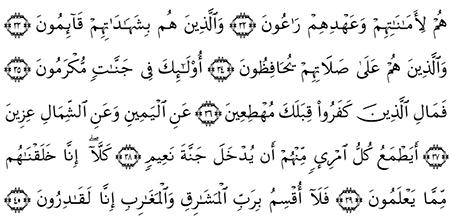 هُمْ لِأَمَٰنَٰتِهِمْ وَعَهْدِهِمْ رَٰعُونَ ﴿٣٢﴾ وَٱلَّذِينَ هُم بِشَهَٰدَٰتِهِمْ قَآئِمُونَ ﴿٣٣﴾
وَٱلَّذِينَ هُمْ عَلَىٰ صَلَاتِهِمْ يُحَافِظُونَ ﴿٣٤﴾ أُو۟لَٰٓئِكَ فِى جَنَّٰتٍ مُّكْرَمُونَ ﴿٣٥﴾
فَمَالِ ٱلَّذِينَ كَفَرُوا۟ قِبَلَكَ مُهْطِعِينَ ﴿٣٦﴾ عَنِ ٱلْيَمِينِ وَعَنِ ٱلشِّمَالِ عِزِينَ
﴿٣٧﴾ أَيَطْمَعُ كُلُّ ٱمْرِئٍ مِّنْهُمْ أَن يُدْخَلَ جَنَّةَ نَعِيمٍ ﴿٣٨﴾ كَلَّآ ۖ إِنَّا خَلَقْنَٰهُم
مِّمَّا يَعْلَمُونَ ﴿٣٩﴾ فَلَآ أُقْسِمُ بِرَبِّ ٱلْمَشَٰرِقِ وَٱلْمَغَٰرِبِ إِنَّا لَقَٰدِرُونَ ﴿٤٠﴾